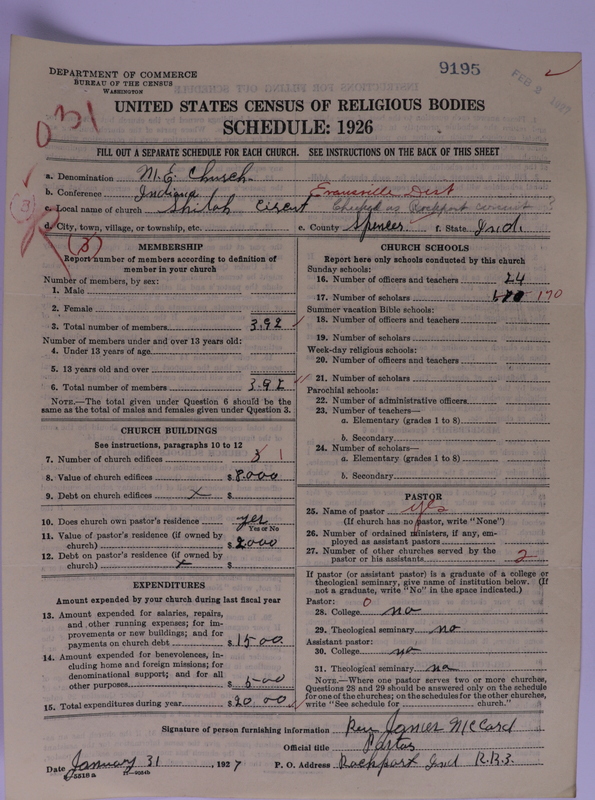 9195
FEB 2 1927
DEPARTMENT OF COMMERCE
BUREAU OF THE CENSUS
WASHINGTON
031
UNITED STATES CENSUS OF RELIGIOUS BODIES
SCHEDULE: 1926
FILL OUT A SEPARATE SCHEDULE FOR EACH CHURCH. SEE INSTRUCTIONS ON THE BACK OF THIS SHEET
a. Denomination M.E. Church
b. Conference Indiana Evansville Dist
c. Local name of church Shiloh Circut Checked as Rockport circuit ?
d. City, town, village, or township, etc. e. County Spencer f. State Ind.
(3)
(3)
MEMBERSHIP
Report number of members according to definition of
member in your church
Number of members, by sex:
1. Male
2. Female
3. Total number of members 392
Number of members under and over 13 years old:
4. Under 13 years of age
5. 13 years old and over
6. Total number of members 392
NOTE.—The total given under Question 6 should be the
same as the total of males and females given under Question 3.
CHURCH BUILDINGS
See instructions, paragraphs 10 to 12
7. Number of church edifices 3 1
8. Value of church edifices $ 8000
9. Debt on church edifices x $
10. Does church own pastor's residence yes
Yes or No
11. Value of pastor's residence (if owned by
church) $ 2000
12. Debt on pastor's residence (if owned by
church) x $
EXPENDITURES
Amount expended by your church during last fiscal year
13. Amount expended for salaries, repairs,
and other running expenses; for im-
provements or new buildings; and for
payments on church debt $ 1500
14. Amount expended for benevolences, in-
cluding home and foreign missions; for
denominational support; and for all
other purposes $ 500
15. Total expenditures during year $ 2000
CHURCH SCHOOLS
Report here only schools conducted by this church
Sunday schools:
16. Number of officers and teachers 24
17. Number of scholars 170
Summer vacation Bible schools:
18. Number of officers and teachers
19. Number of scholars
Week-day religious schools:
20. Number of officers and teachers
21. Number of scholars
Parochial schools:
22. Number of administrative officers
23. Number of teachers—
a. Elementary (grades 1 to 8)
b. Secondary
24. Number of scholars—
a. Elementary (grades 1 to 8)
b. Secondary
PASTOR
25. Name of pastor yes
(If church has no pastor, write "None")
26. Number of ordained ministers, if any, em-
ployed as assistant pastors
27. Number of other churches served by the
pastor or his assistants 2
If pastor (or assistant pastor) is a graduate of a college or
theological seminary, give name of institution below. (If
not a graduate, write "No" in the space indicated.)
Pastor: 0
28. College no
29. Theological seminary no
Assistant pastor:
30. College no
31. Theological seminary no
NOTE.—Where one pastor serves two or more churches,
Questions 28 and 29 should be answered only on the schedule
for one of the churches; on the schedules for the other churches,
write "See schedule for church."
Signature of person furnishing information Rev James McCord
Official title Pastor
Date January 31, 1927 P. O. Address Rockport Ind R.R.3.